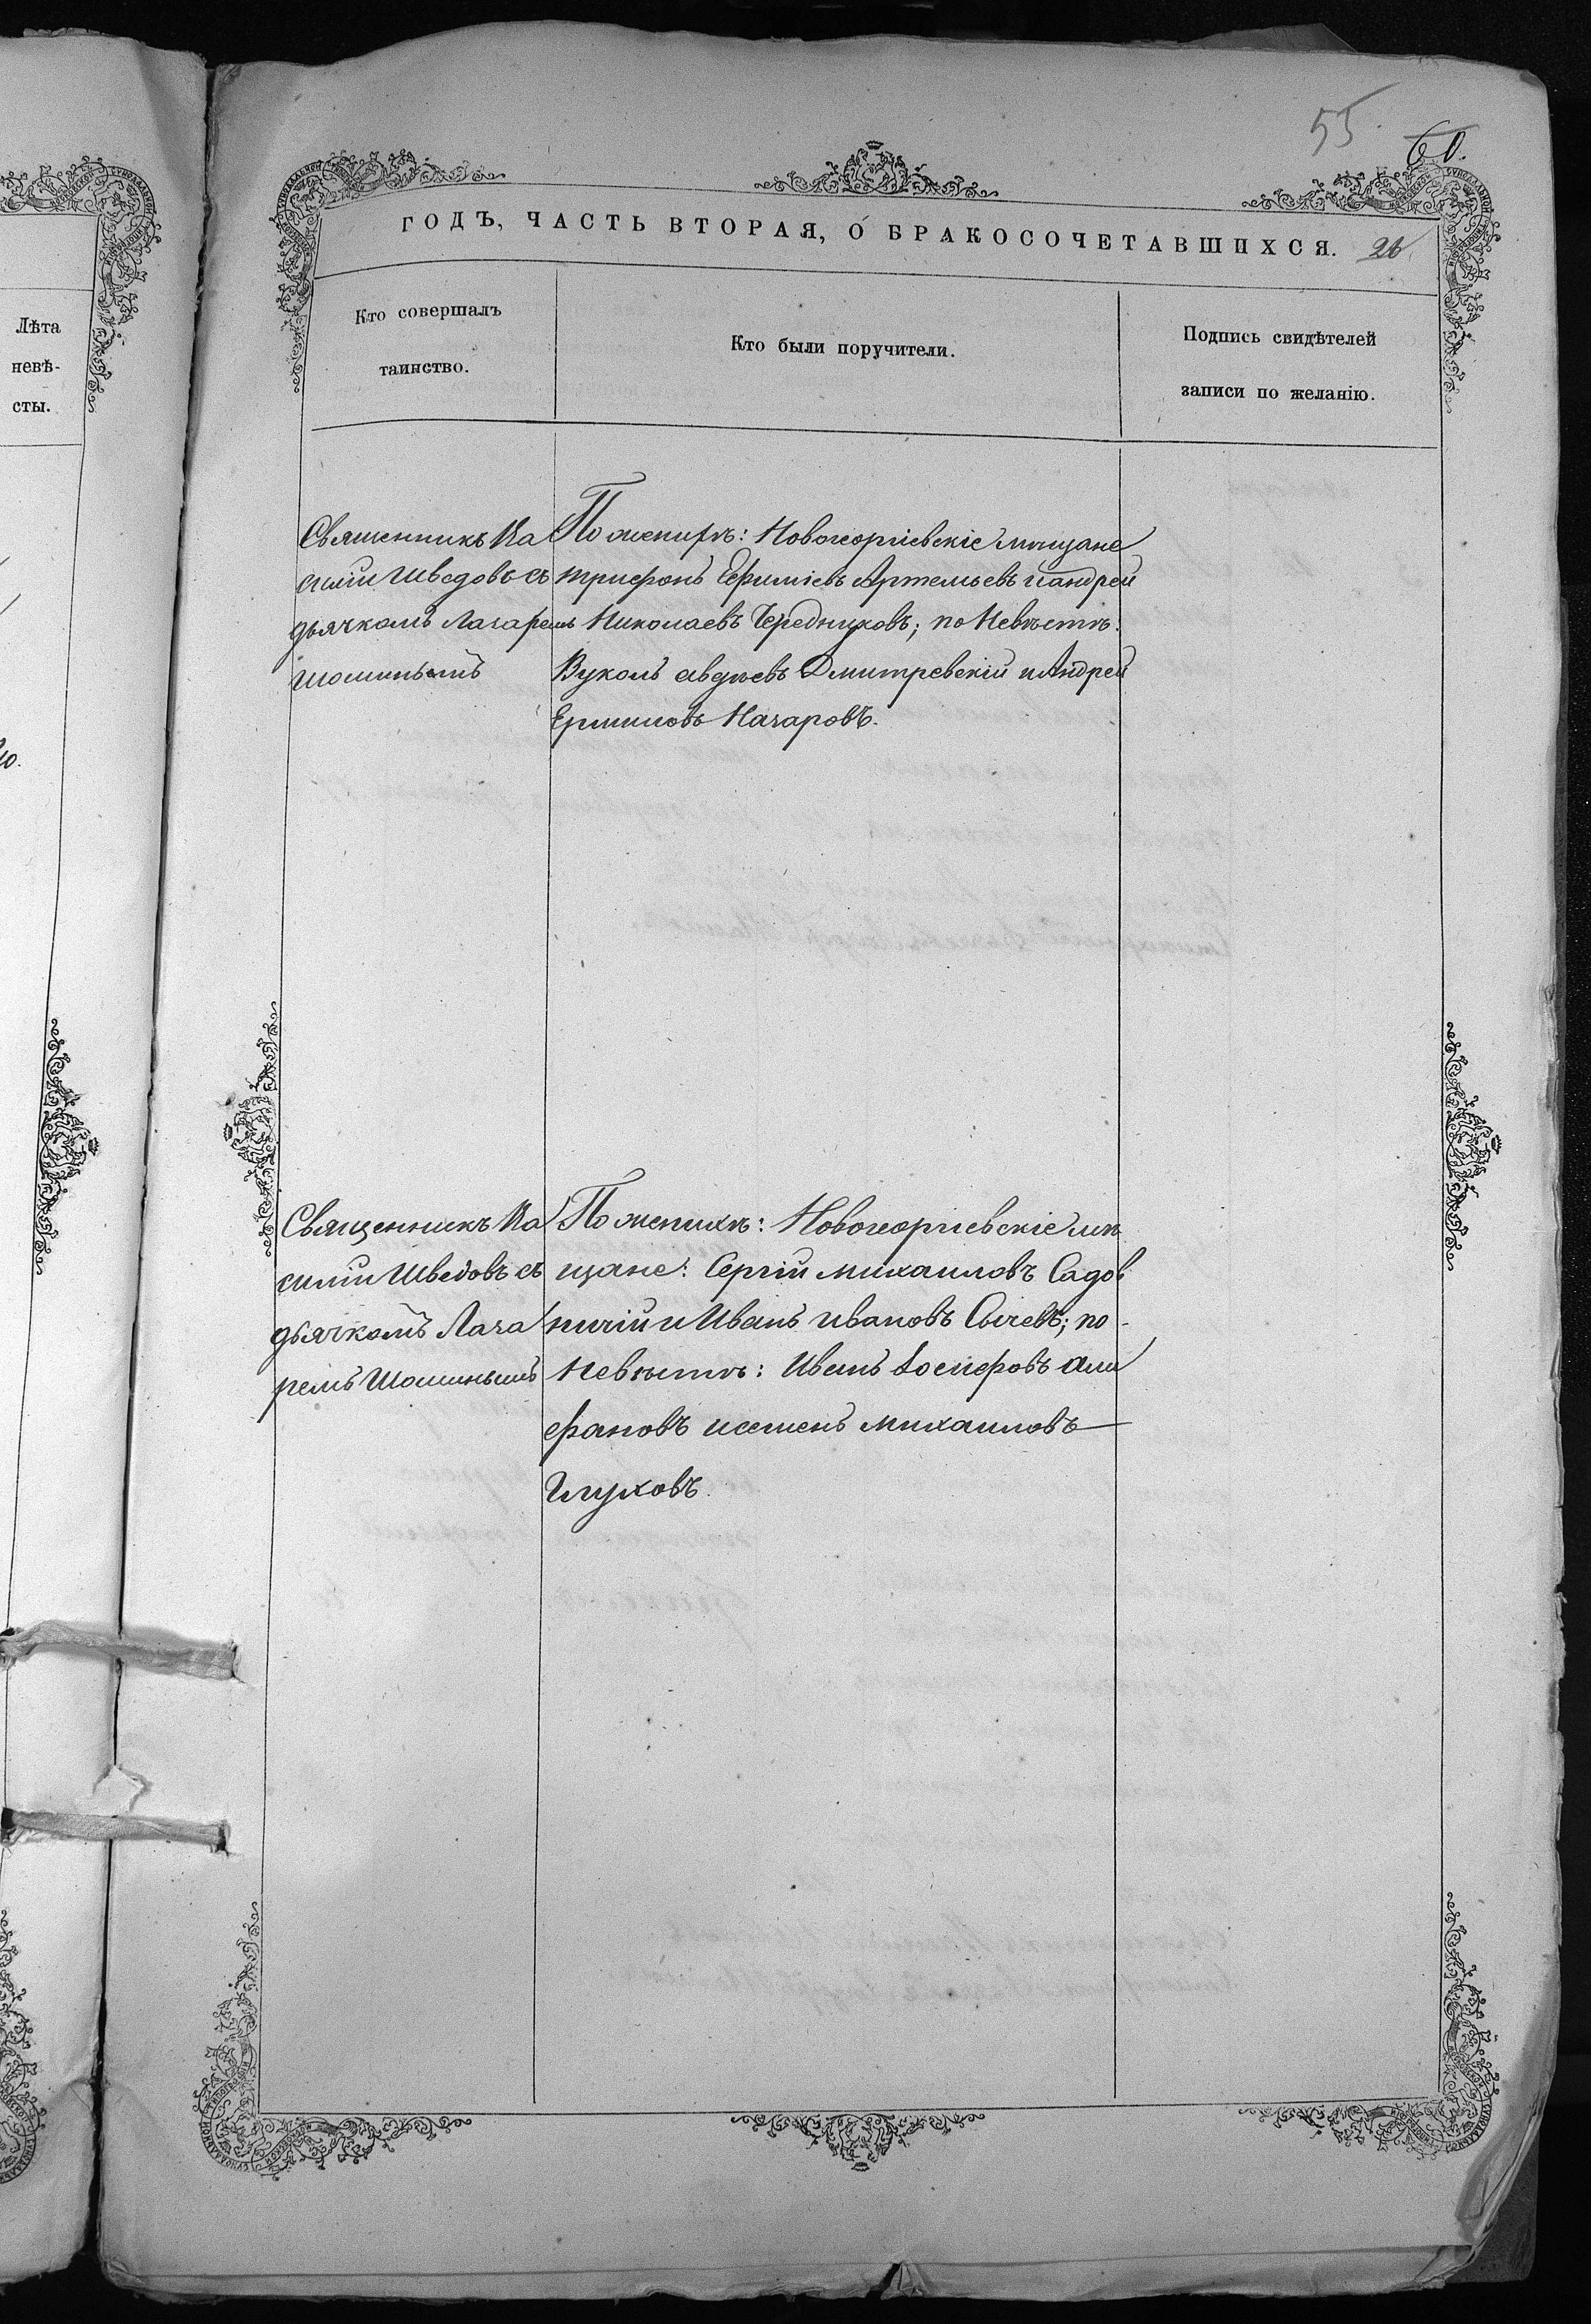 55.
60.
ГОДЪ, ЧАСТЬ ВТОРАЯ, О БРАКОСОЧЕТАВШИХСЯ. 26
Лѣта
невѣ-
сты.
Кто совершалъ
таинство.
Кто были поручители.
Подпись свидѣтелей
записи по желанію.
Священникъ Ва
силій Шведовъ съ
дьячкомъ Лазаремъ
Шошинымъ
По женихѣ: Новогеоргіевскіе мѣщане
Трифонъ Ефиміевъ Артемьевъ и Андрей
Николаевъ Чередниковъ; по Невѣстѣ:
Вуколъ Авдѣевъ Дмитревскій и Андрей
Ермиловъ Назаровъ.
Священникъ Ва
силій Шведовъ съ
дьячкомъ Лаза
ремъ Шошинымъ
По женихѣ: Новогеоргіевскіе мѣ
щане: Сергій Михаиловъ Садов
ничій и Иванъ Ивановъ Сычевъ; по
Невѣстѣ: Иванъ Іосифовъ Али
фановъ и Семенъ Михаиловъ
Глуховъ.